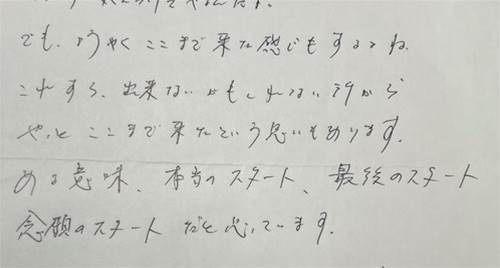 でも、ようやくここまで来た感じもするよね
これすら、出来ないかもしれない所から
やっとここまで来たという思いもあります。
ある意味、本当のスタート、最後のスタート
念願のスタートだと思っています。